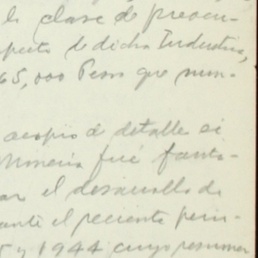 la clase de preocu-
specto de dicha Industria,
65,000 Pesos que sum-
acopio de detalles si
Minería fué fanta-
ar el desarrollo de
ante el reciente perio-
5 y 1944 cuyo resumen